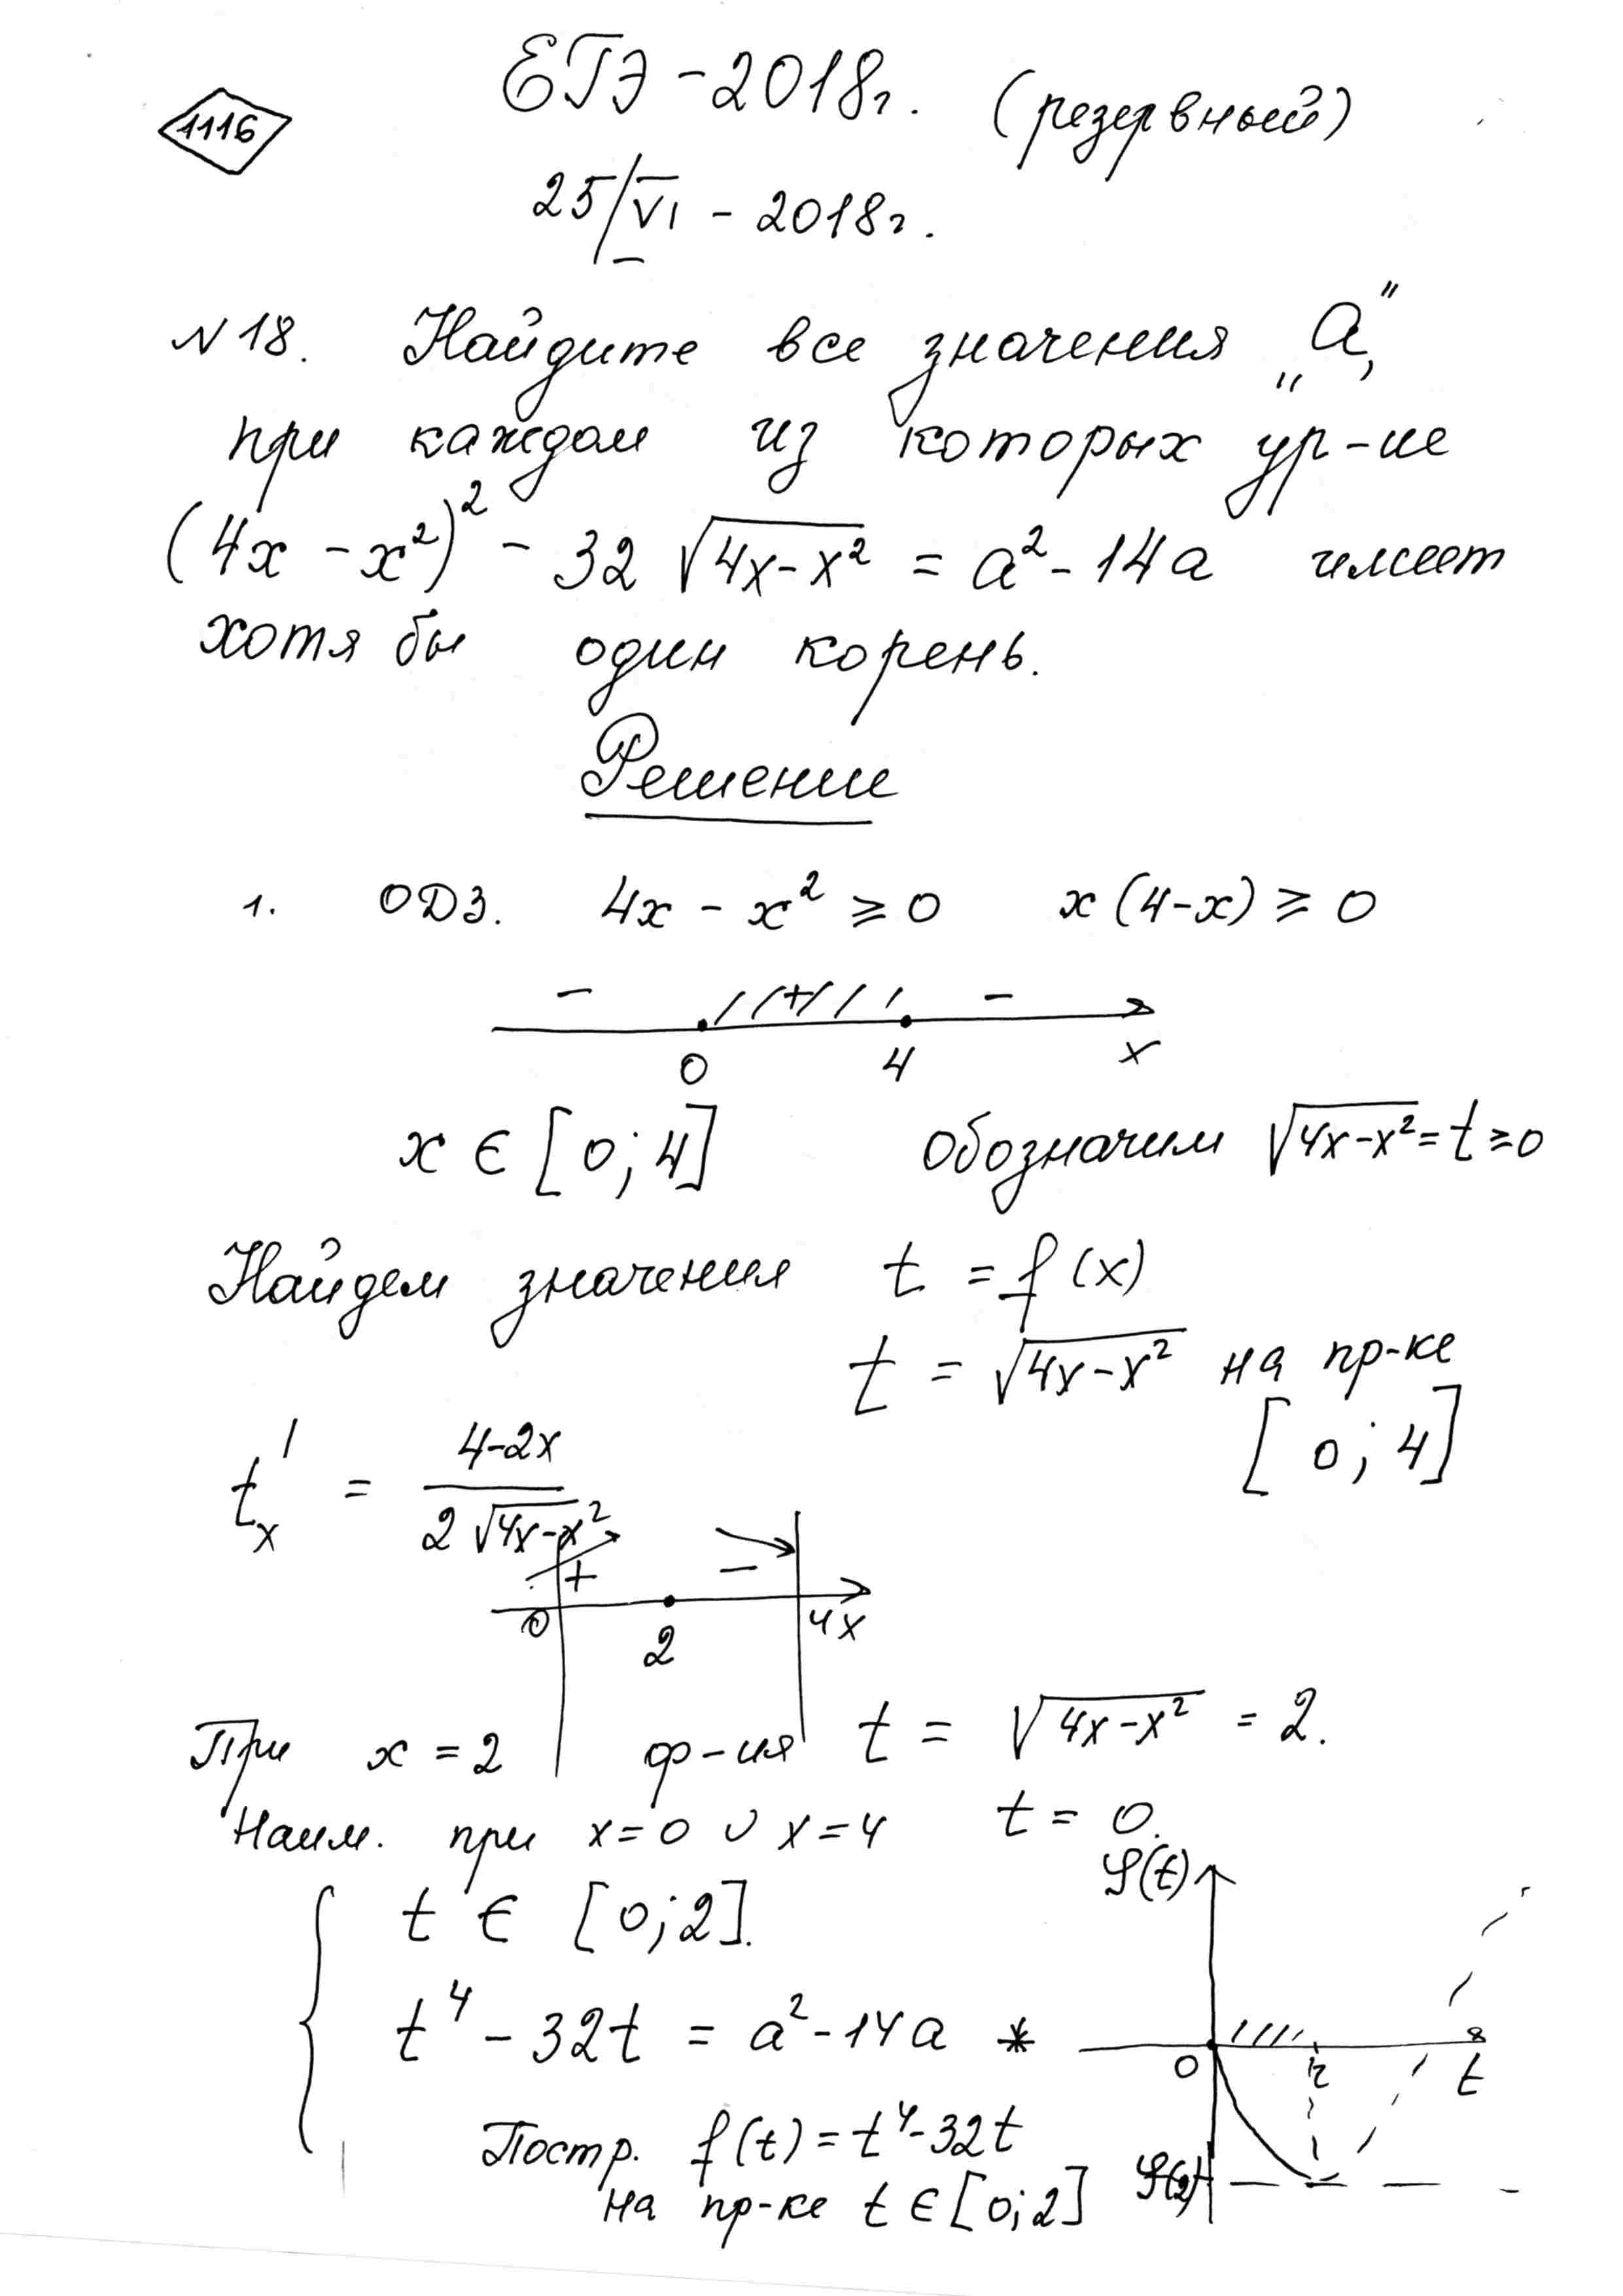 1116
ЕГЭ-2018г. (резервный)
25/VI - 2018г.
N18. Найдите все значения „а",
при каждом из которых ур-ие
(4x - x²)² - 32 √(4x-x²) = a² - 14a имеет
хотя бы один корень.
Решение
1. ОДЗ. 4x - x² ≥ 0 x(4-x) ≥ 0
- + -
0 4 x
x ∈ [0; 4] обозначим √(4x-x²) = t ≥ 0
Найдем значения t = f(x)
t = √(4x-x²) на пр-ке
[0; 4]
t'ₓ = (4-2x)/(2√(4x-x²))
+ -
0 2 4 x
При x = 2 ф-ия t = √(4x-x²) = 2.
Наим. при x=0 ∪ x=4 t = 0.
φ(t)
t ∈ [0; 2].
t⁴ - 32t = a² - 14a *
0 2 t
Постр. f(t) = t⁴ - 32t
φ(2)
на пр-ке t ∈ [0; 2]